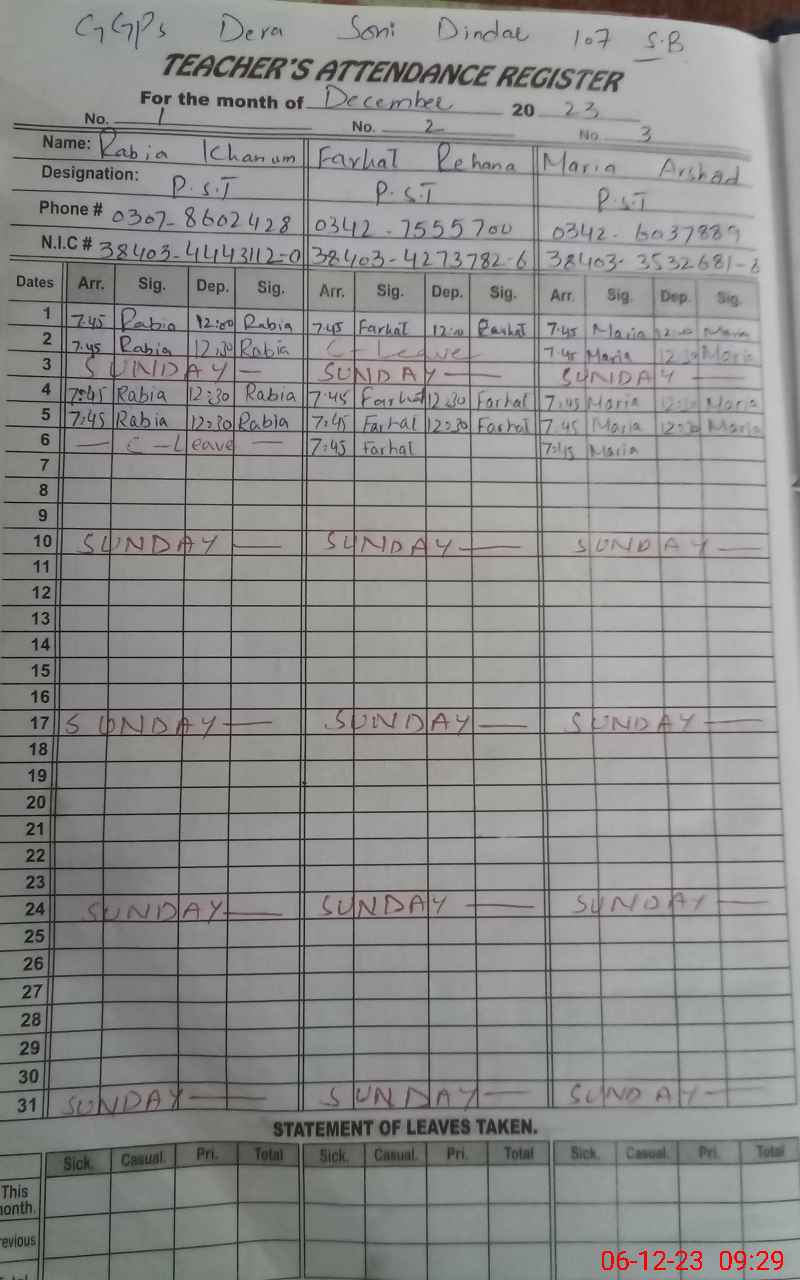 GGPs Dera Soni Dindar 107 S.B
TEACHER'S ATTENDANCE REGISTER
For the month of December 2023
No. 1 No. 2 No 3
Name: Rabia Khanum Farhat Rehana Maria Arshad
Designation: P.S.T P.S.T P.S.T
Phone # 0307-8602428 0342-7555700 0342-6037889
N.I.C # 38403-4443112-0 38403-4273782-6 38403-3532681-8
Dates Arr. Sig. Dep. Sig. Arr. Sig. Dep. Sig. Arr. Sig. Dep. Sig.
1 7:45 Rabia 12:00 Rabia 7:45 Farhat 12:00 Farhat 7:45 Maria 12:00 Maria
2 7:45 Rabia 12:30 Rabia C-Leave 7:45 Maria 12:30 Maria
3 SUNDAY — SUNDAY — SUNDAY —
4 7:45 Rabia 12:30 Rabia 7:45 Farhat 12:30 Farhat 7:45 Maria 12:30 Maria
5 7:45 Rabia 12:30 Rabia 7:45 Farhat 12:30 Farhat 7:45 Maria 12:30 Maria
6 — C-Leave — 7:45 Farhat 7:45 Maria
7
8
9
10 SUNDAY — SUNDAY — SUNDAY —
11
12
13
14
15
16
17 SUNDAY — SUNDAY — SUNDAY —
18
19
20
21
22
23
24 SUNDAY — SUNDAY — SUNDAY —
25
26
27
28
29
30
31 SUNDAY — SUNDAY — SUNDAY —
STATEMENT OF LEAVES TAKEN.
Sick. Casual. Pri. Total Sick. Casual. Pri. Total Sick. Casual. Pri. Total
This
onth.
revious
06-12-23 09:29